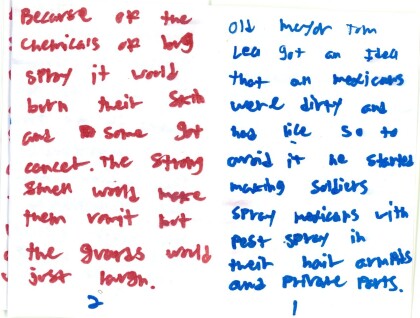 Because of the
Chemicals of bug
spray it would
burn their Skin
and some got
cancer. The Strong
Smell would make
them vomit but
the guards would
just laugh.
2
Old mayor Tom
Lea got an Idea
that all mexicans
were dirty and
had lice so to
avoid it he started
making soldiers
spray mexicans with
pest spray in
their hair armpits
and private parts.
1